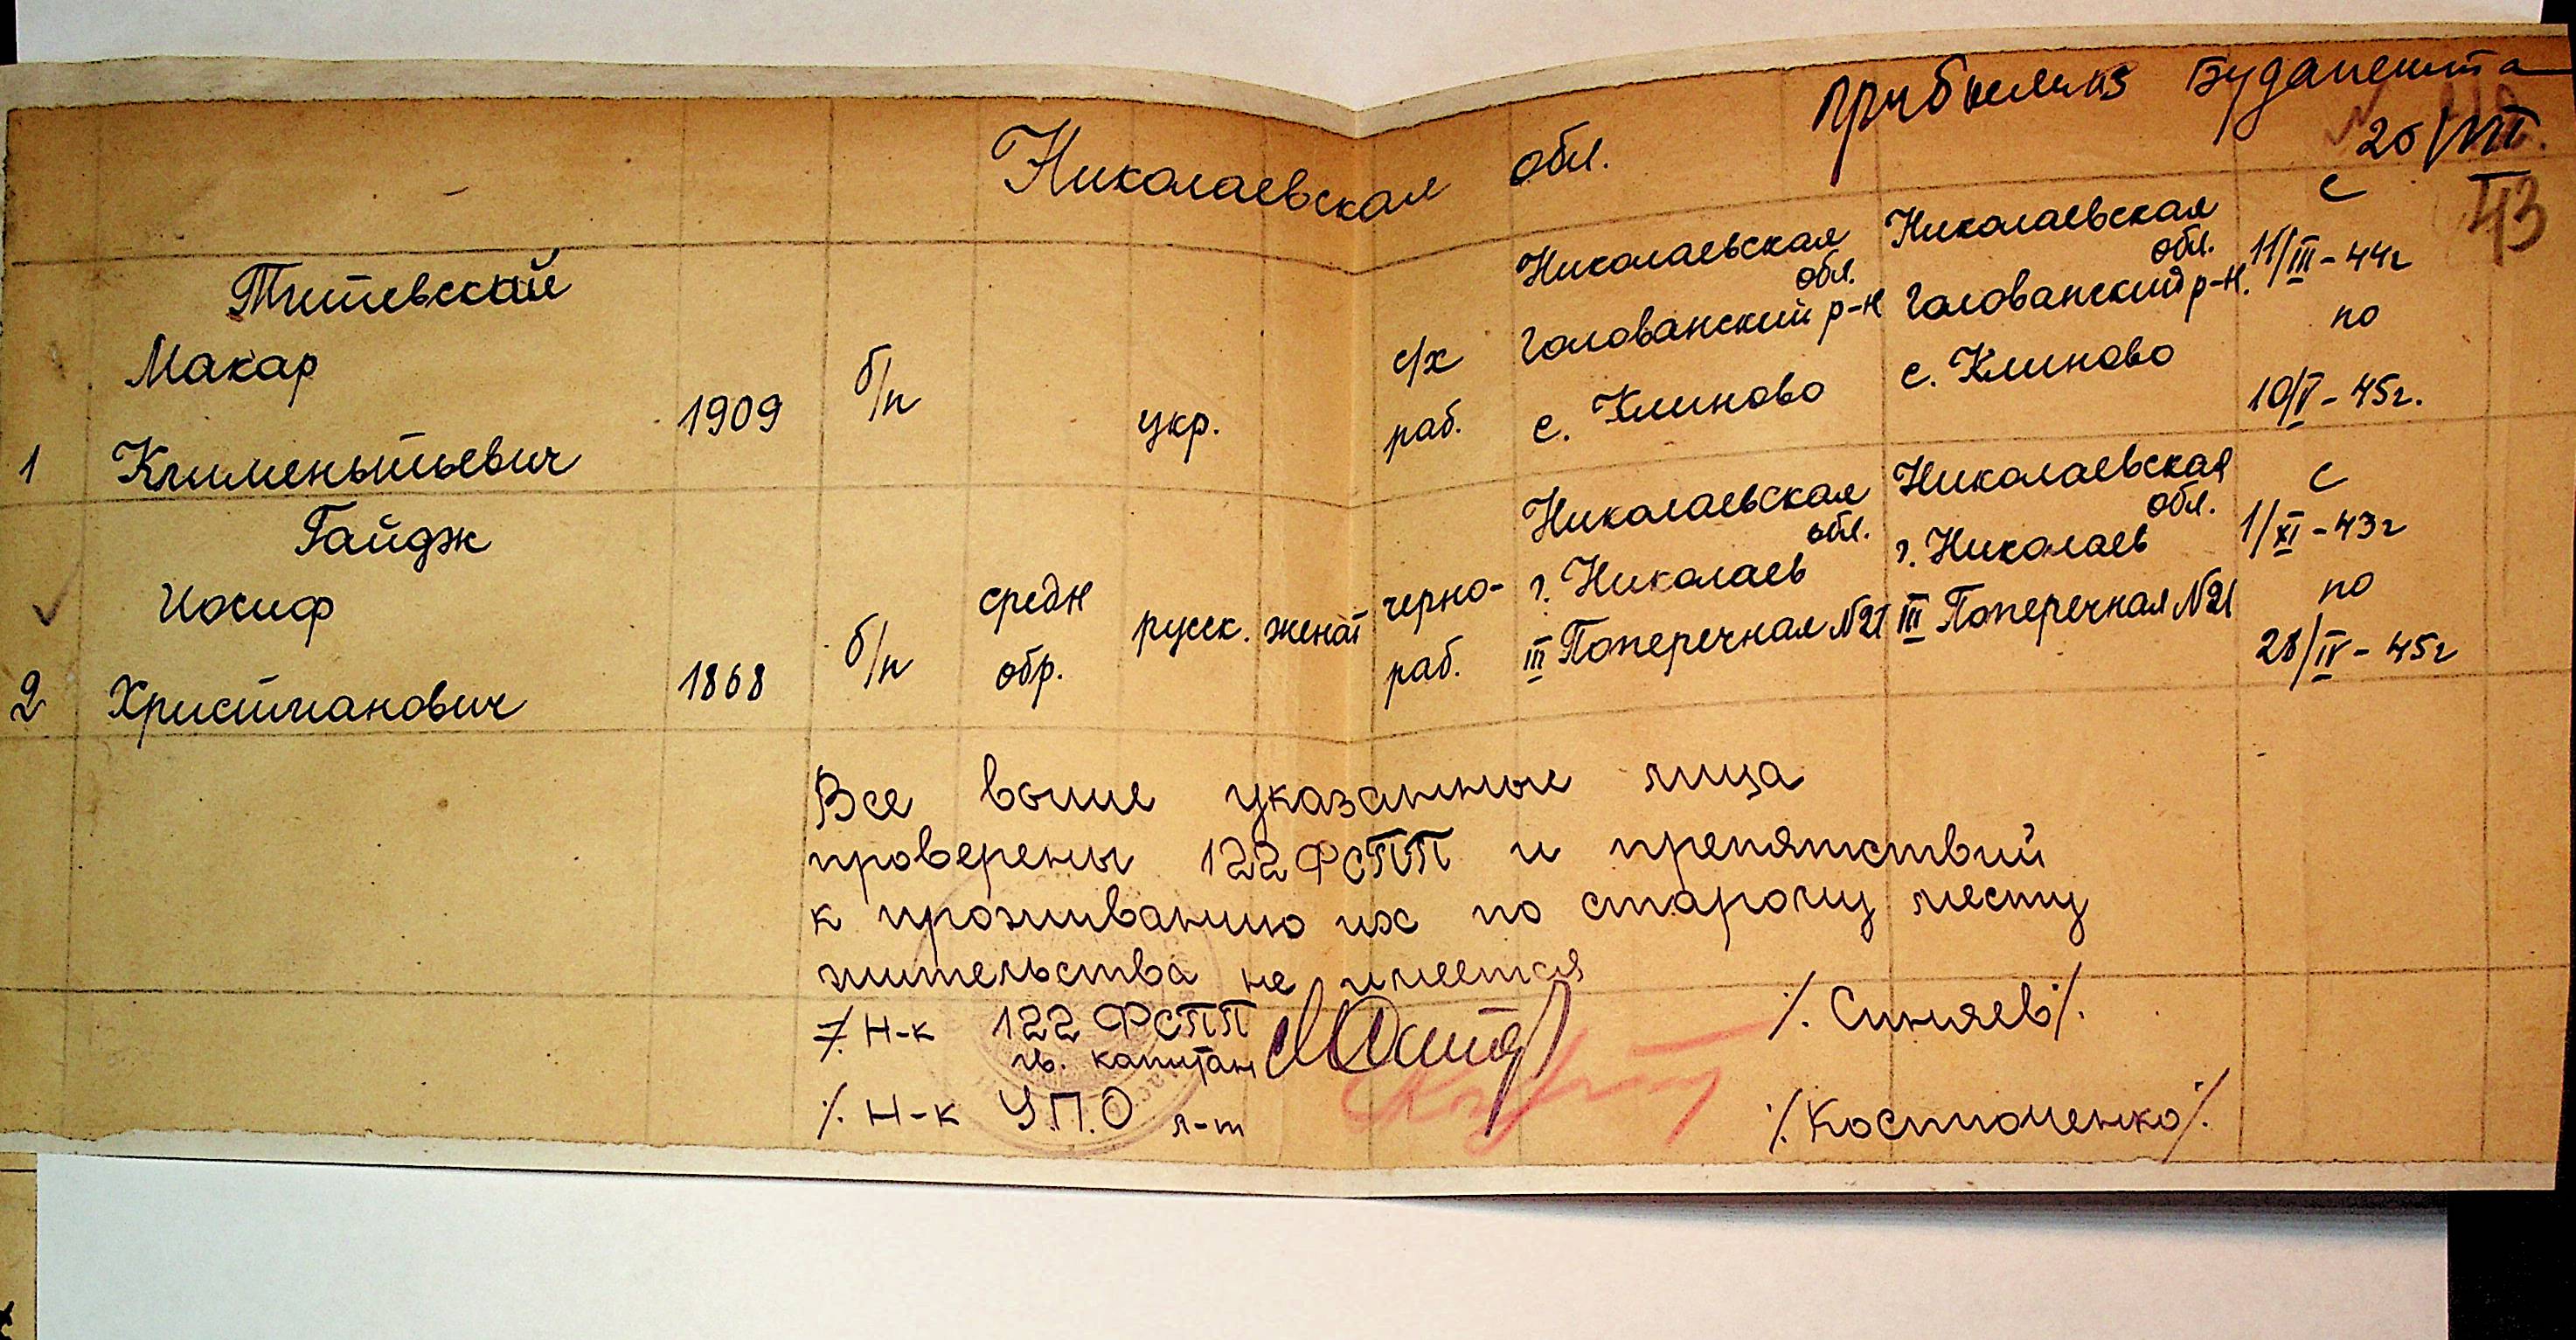 прибыли из Будапешта
26/VII.
43
Николаевская обл.
Титевский
Макар
1 Климентьевич 1909 б/п укр. с/х раб.
Николаевская обл. Голованский р-н с. Клиново
Николаевская обл. Голованский р-н. с. Клиново
с 11/III-44г по 10/V-45г.
Гайдж
Иосиф
2 Христианович 1868 б/п средн обр. русск. женат черно-раб.
Николаевская обл. г. Николаев III Поперечная N21
Николаевская обл. г. Николаев III Поперечная N21
с 1/XI-43г по 28/IV-45г
Все выше указанные лица
проверены 122 ФСПП и препятствий
к проживанию их по старому месту
жительства не имеется
Н-к 122 ФСПП
гв. капитан /Синяев/.
Н-к У.П.О л-т /Костюченко/.